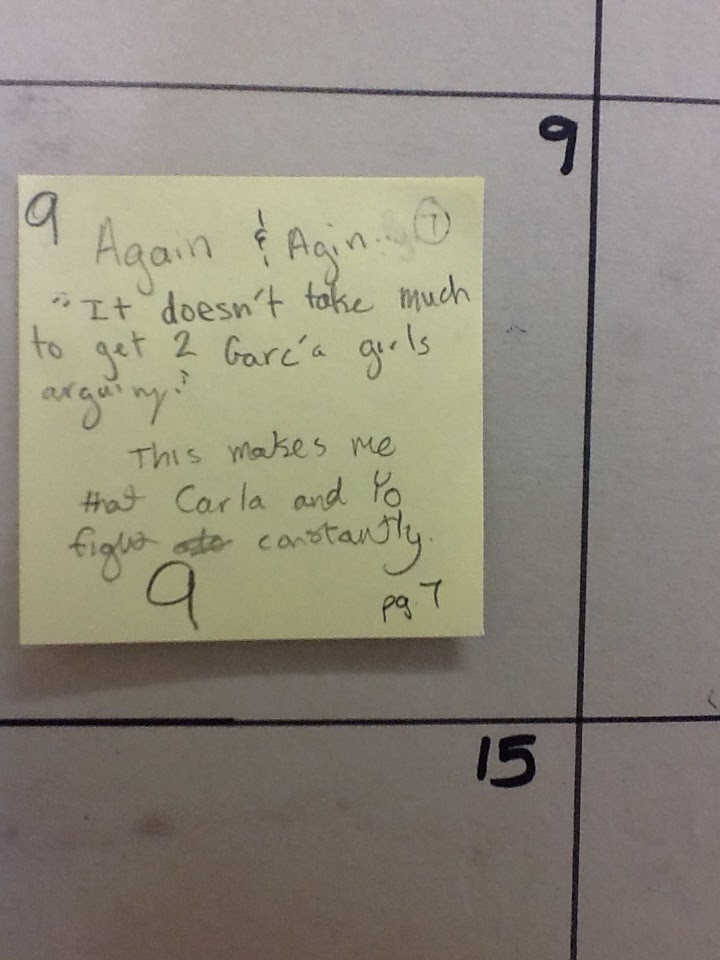 9
9 Again & Agin.. 7
"It doesn't take much
to get 2 Garc'a girls
arguing."
This makes me
that Carla and Yo
fight constantly.
9 pg. 7
15